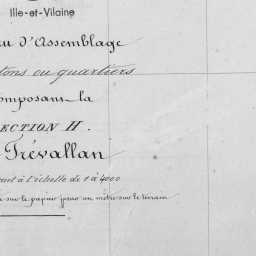 Ille-et-Vilaine
au d'Assemblage
tons ou quartiers
omposans la
ECTION H.
Trévallan
à l'échelle de 1 à 4000
sur le papier pour un mètre sur le terrain